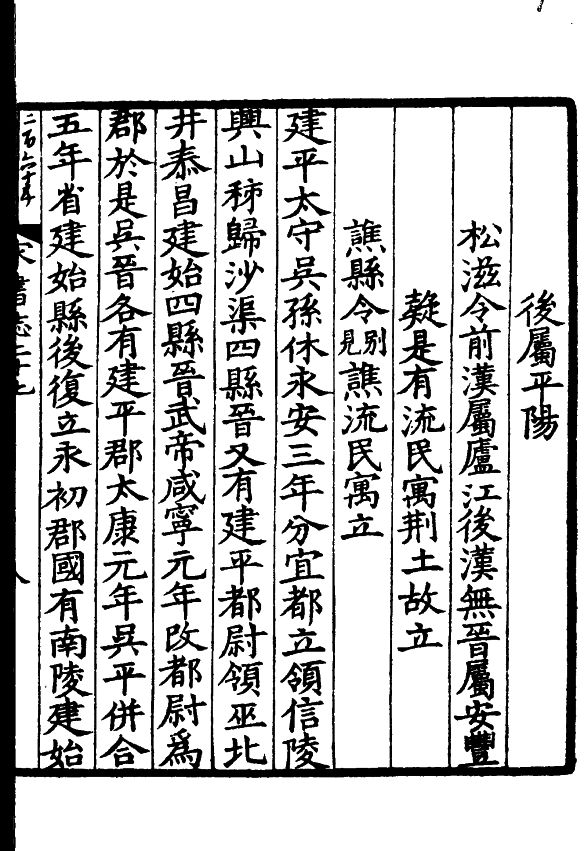 後屬平陽
松滋令前漢屬廬江後漢無晉屬安豐
疑是有流民寓荆土故立
譙縣令別見譙流民寓立
建平太守吳孫休永安三年分宜都立領信陵
興山秭歸沙渠四縣晉又有建平都尉領巫北
井泰昌建始四縣晉武帝咸寧元年改都尉爲
郡於是吳晉各有建平郡太康元年吳平併合
五年省建始縣後復立永初郡國有南陵建始